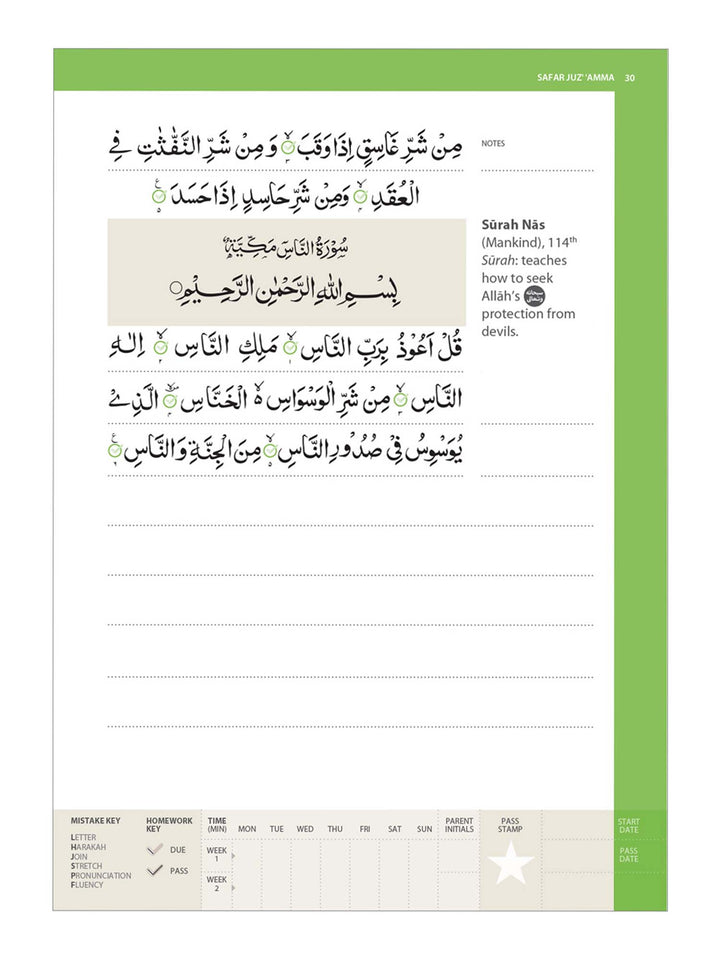 SAFAR JUZ' 'AMMA 30
مِنْ شَرِّ غَاسِقٍ اِذَا وَقَبَ ۙ وَ مِنْ شَرِّ النَّفّٰثٰتِ فِي
الْعُقَدِ ۙ وَمِنْ شَرِّ حَاسِدٍ اِذَا حَسَدَ ۧ
سُوْرَةُ النَّاسِ مَكِّيَّةٌ
بِسْمِ اللهِ الرَّحْمٰنِ الرَّحِيْمِ
قُلْ اَعُوْذُ بِرَبِّ النَّاسِ ۙ مَلِكِ النَّاسِ ۙ اِلٰهِ
النَّاسِ ۙ مِنْ شَرِّ الْوَسْوَاسِ ە الْخَنَّاسِ ۙ الَّذِيْ
يُوَسْوِسُ فِيْ صُدُوْرِ النَّاسِ ۙ مِنَ الْجِنَّةِ وَ النَّاسِ ۧ
NOTES
Sūrah Nās
(Mankind), 114th
Sūrah: teaches
how to seek
Allāh's سبحانه وتعالى
protection from
devils.
MISTAKE KEY
LETTER
HARAKAH
JOIN
STRETCH
PRONUNCIATION
FLUENCY
HOMEWORK
KEY
DUE
PASS
TIME
(MIN) MON TUE WED THU FRI SAT SUN
WEEK
1
WEEK
2
PARENT
INITIALS
PASS
STAMP
START
DATE
PASS
DATE